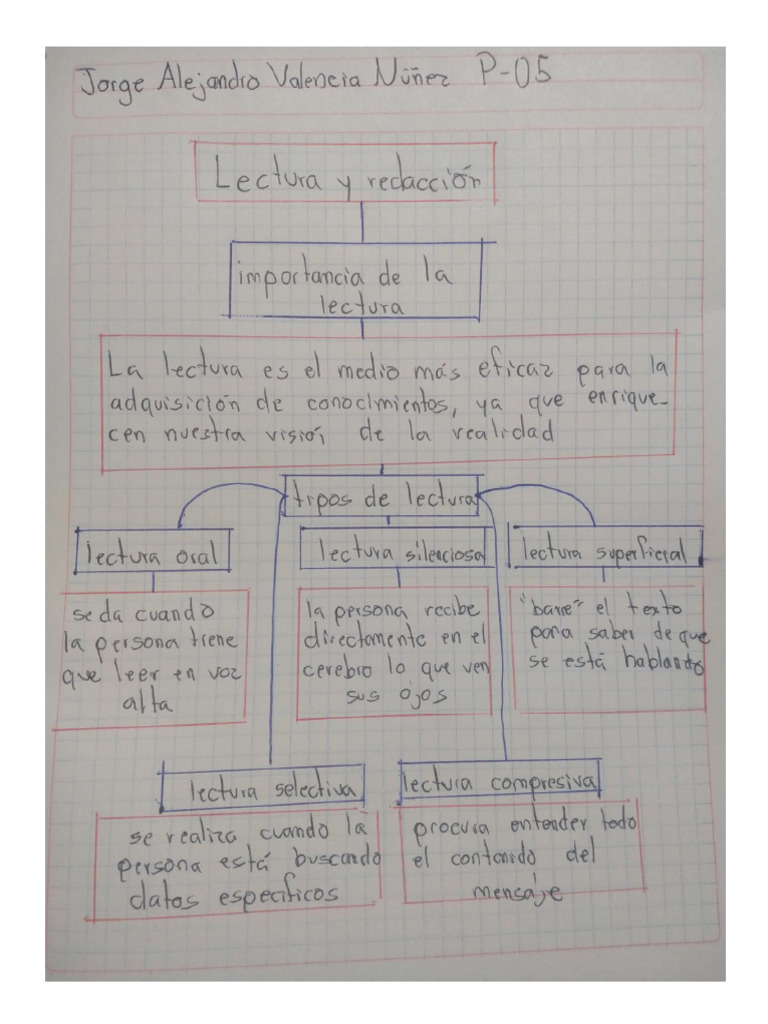 Jorge Alejandro Valencia Núñez P-05
Lectura y redacción
importancia de la
lectura
La lectura es el medio más eficaz para la
adquisición de conocimientos, ya que enrique-
cen nuestra visión de la realidad
tipos de lectura
lectura oral
se da cuando
la persona tiene
que leer en voz
alta
lectura silenciosa
la persona recibe
directamente en el
cerebro lo que ven
sus ojos
lectura superficial
"barre" el texto
para saber de que
se está hablando
lectura selectiva
se realiza cuando la
persona está buscando
datos específicos
lectura compresiva
procura entender todo
el contenido del
mensaje